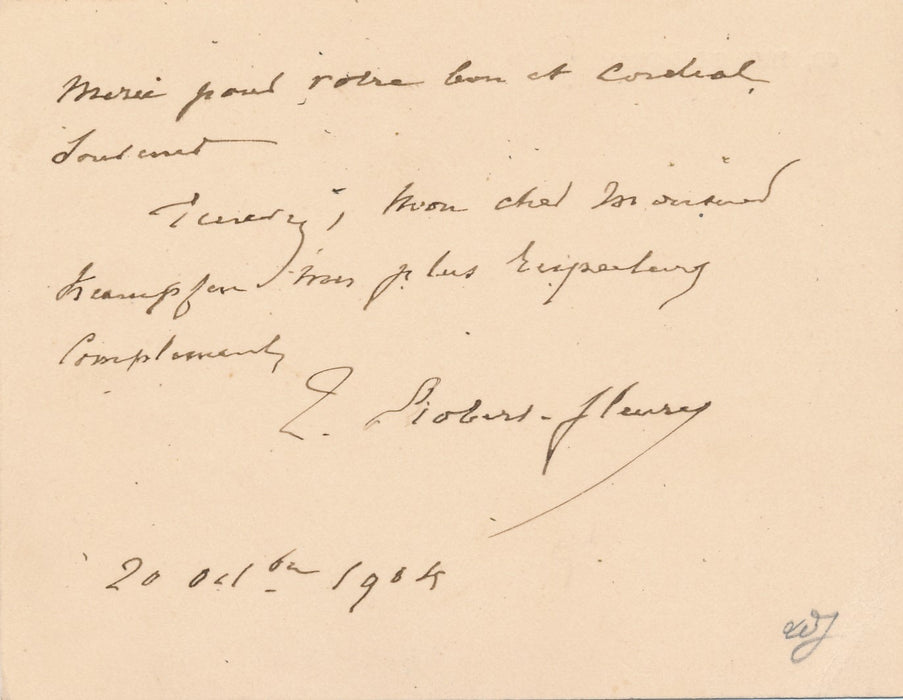 Merci pour votre bon et cordial
Souvenir
Recevez, mon cher Monsieur
Kaempfen mes plus respectueux
Compliments
T. Robert-fleury
20 Oct bre 1904